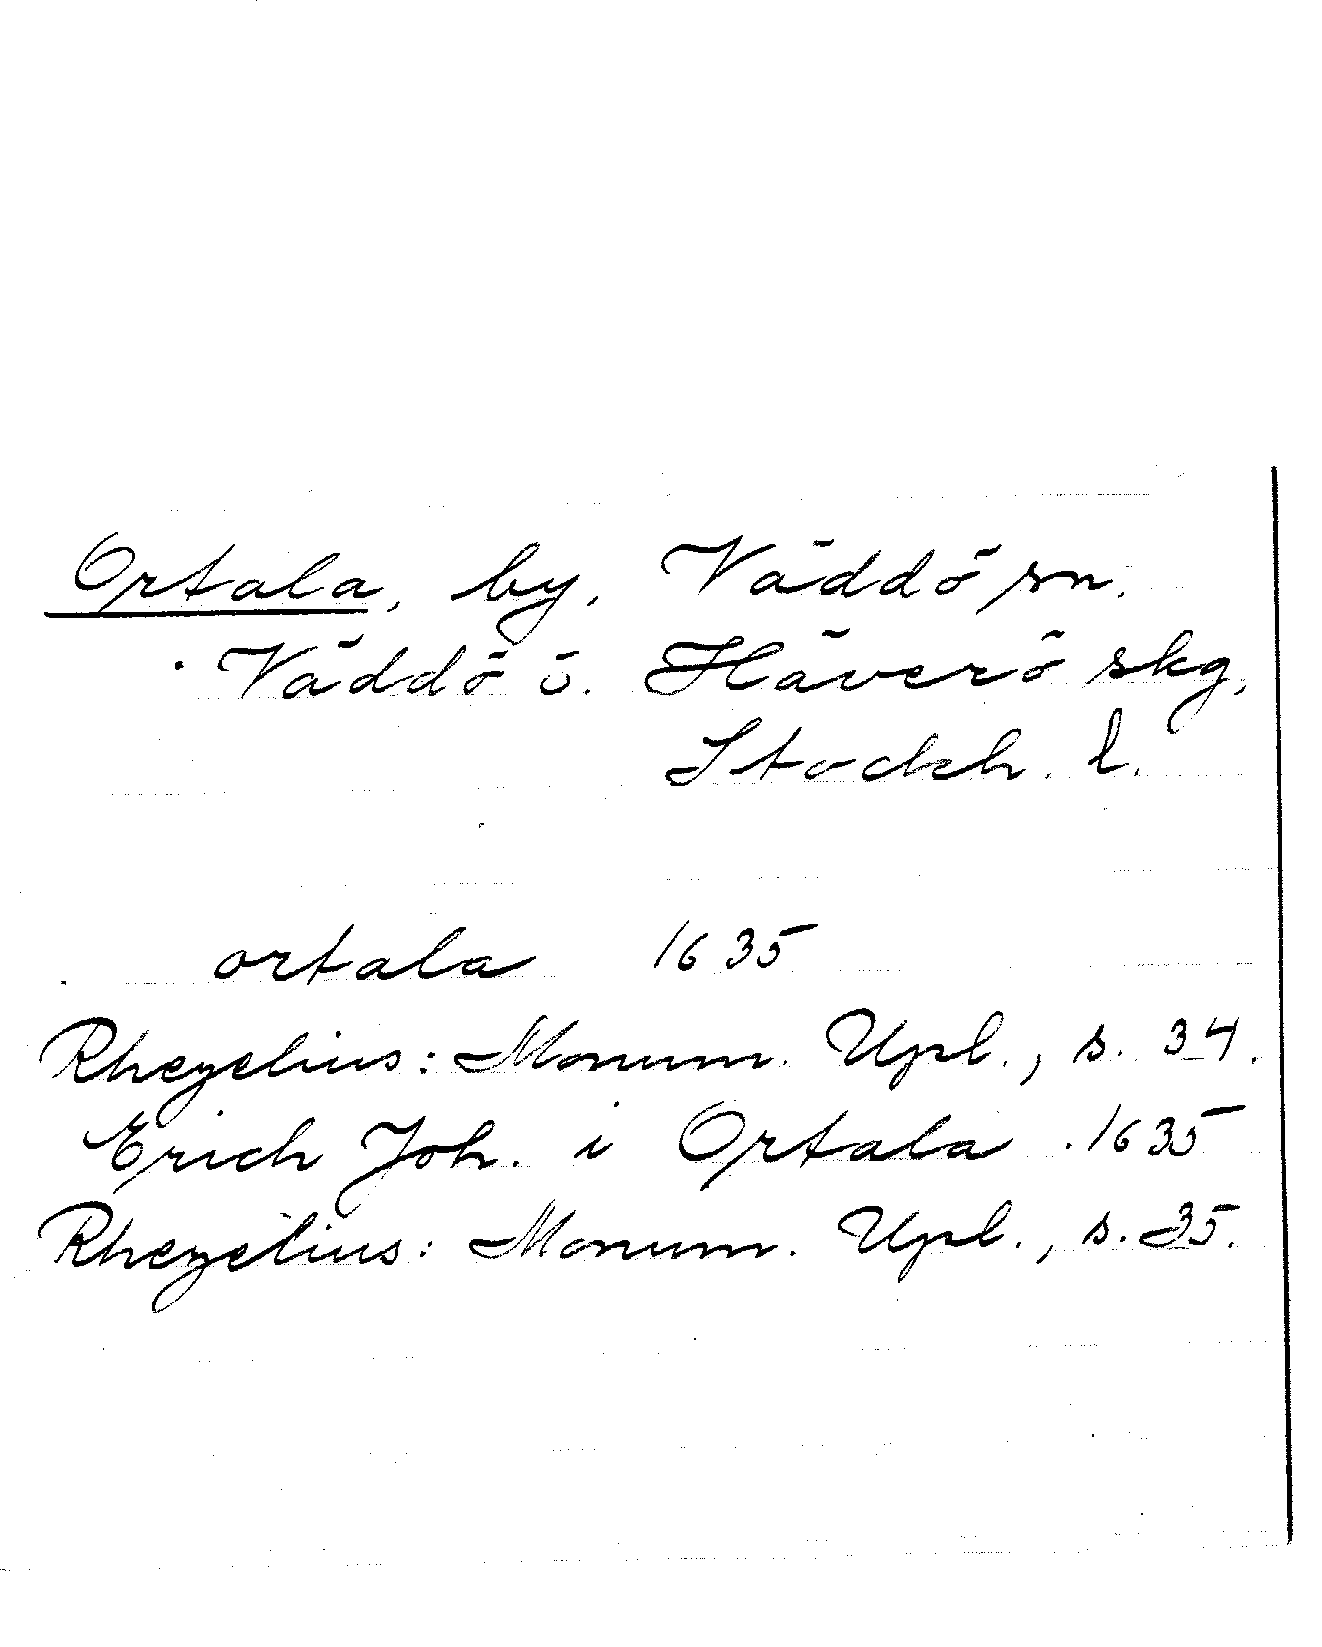 Ortala, by, Väddö sn.
Väddö o. Häverö skg,
Stockh. l.
ortala 1635
Rhezelius: Monum. Upl., s. 34.
Erich Joh. i Ortala 1635
Rhezelius: Monum. Upl., s. 35.